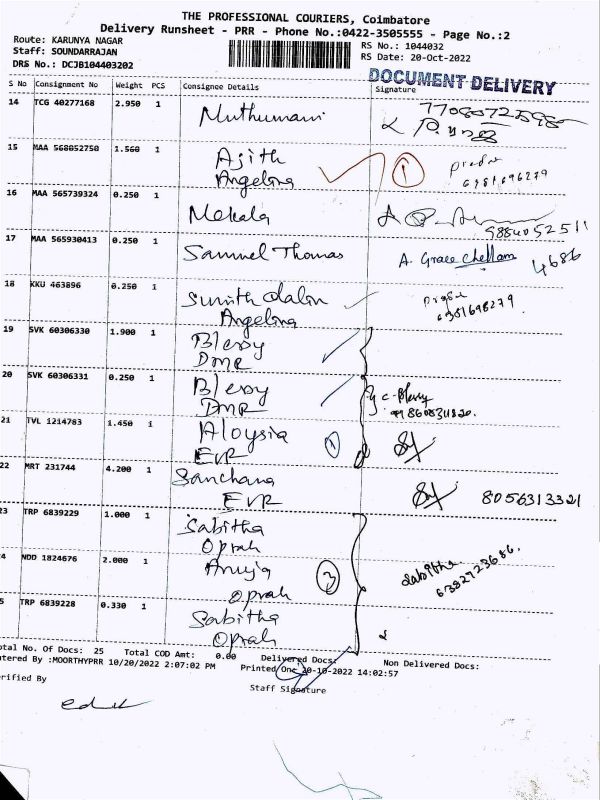 THE PROFESSIONAL COURIERS, Coimbatore
Delivery Runsheet - PRR - Phone No.:0422-3505555 - Page No.:2
Route: KARUNYA NAGAR
RS No.: 1044032
Staff: SOUNDARRAJAN
RS Date: 20-Oct-2022
DRS No.: DCJB104403202
DOCUMENT DELIVERY
S No Consignment No Weight PCS Consignee Details Signature
14 TCG 40277168 2.950 1 Muthumani
15 MAA 568052750 1.560 1 Ajith
Angelina 1
16 MAA 565739324 0.250 1 Mekala
9884052511
17 MAA 565930413 0.250 1 Samuel Thomas A. Grace Chellam 4686
18 KKU 463896 0.250 1
Angelina
19 SVK 60306330 1.900 1 Blessy
DMR
20 SVK 60306331 0.250 1 Blessy
DMR
21 TVL 1214783 1.450 1 Aloysia
EVR 1
22 MRT 231744 4.200 1 Sanchana
EVR 8056313321
23 TRP 6839229 1.000 1 Sabitha
Oprah
4 NDD 1824676 2.000 1 Anuja
Oprah 3 Sabitha
5 TRP 6839228 0.330 1 Sabitha
Oprah
otal No. Of Docs: 25 Total COD Amt: 0.00 Delivered Docs: Non Delivered Docs:
ntered By :MOORTHYPRR 10/20/2022 2:07:02 PM Printed One 20-10-2022 14:02:57
erified By Staff Signature